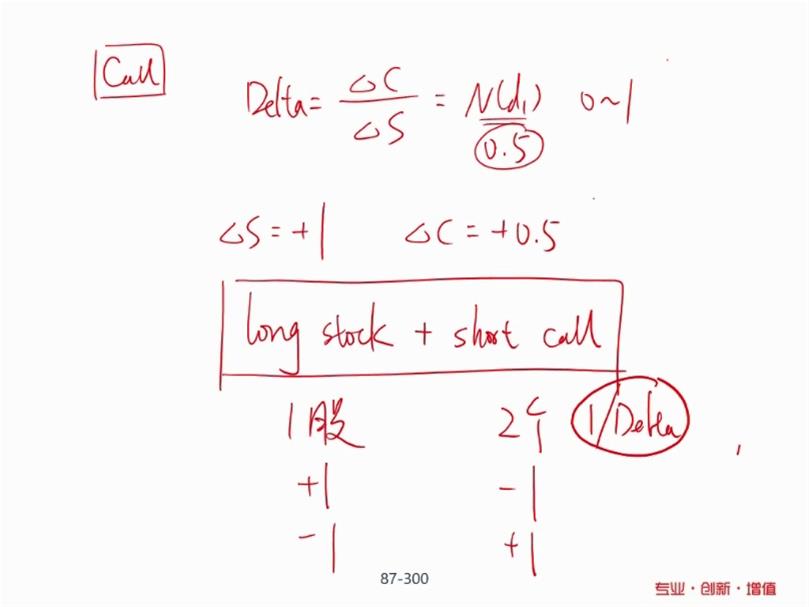 Call
Delta = △C/△S = N(d₁) 0~1
0.5
△S = +1 △C = +0.5
long stock + short call
1股 2个 1/Delta
+1 -1
-1 +1
87-300
专业·创新·增值